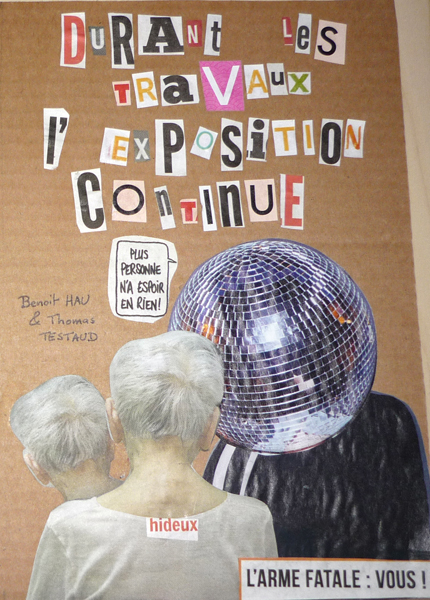 DURANT LES
TRAVAUX
l'EXPOSITION
CONTINUE
PLUS
PERSONNE
N'A ESPOIR
EN RIEN!
Benoît HAU
& Thomas
TESTAUD
hideux
L'ARME FATALE : VOUS !